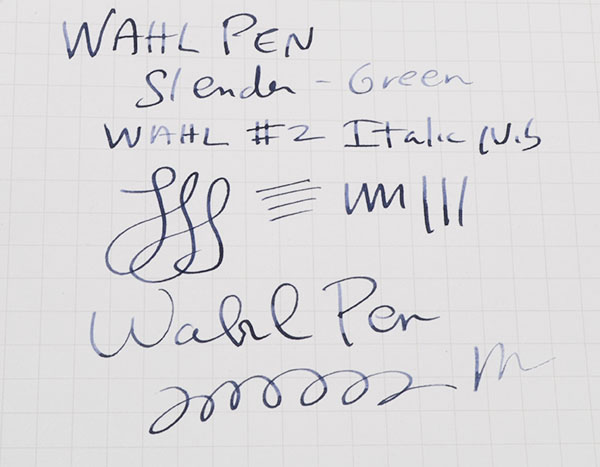 WAHL PEN
Slender - Green
WAHL #2 Italic Nib
Wahl Pen